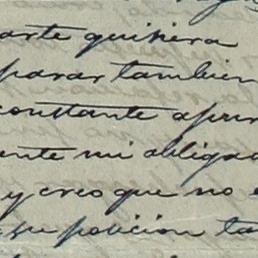 arte quisiera
parar tambien
constante apur
ente mi obligac
y creo que no
su posicion ta